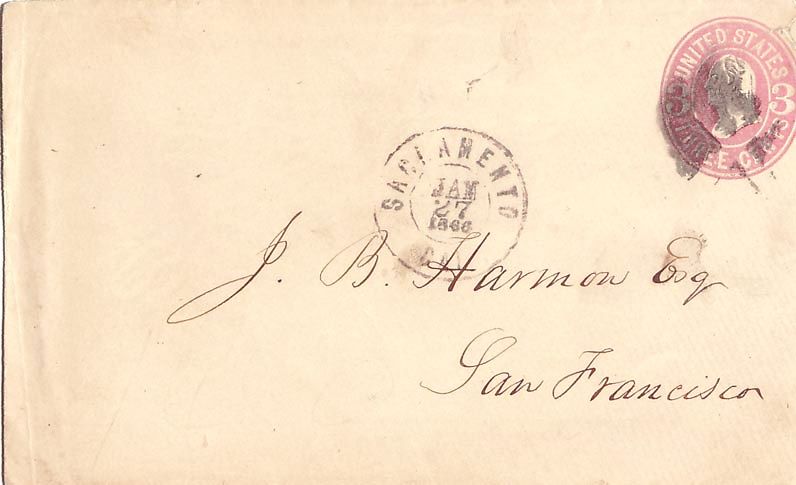 UNITED STATES
3 3
THREE CENTS
SACRAMENTO
JAN
27
1866
CAL
J. B. Harmon Esq
San Francisco